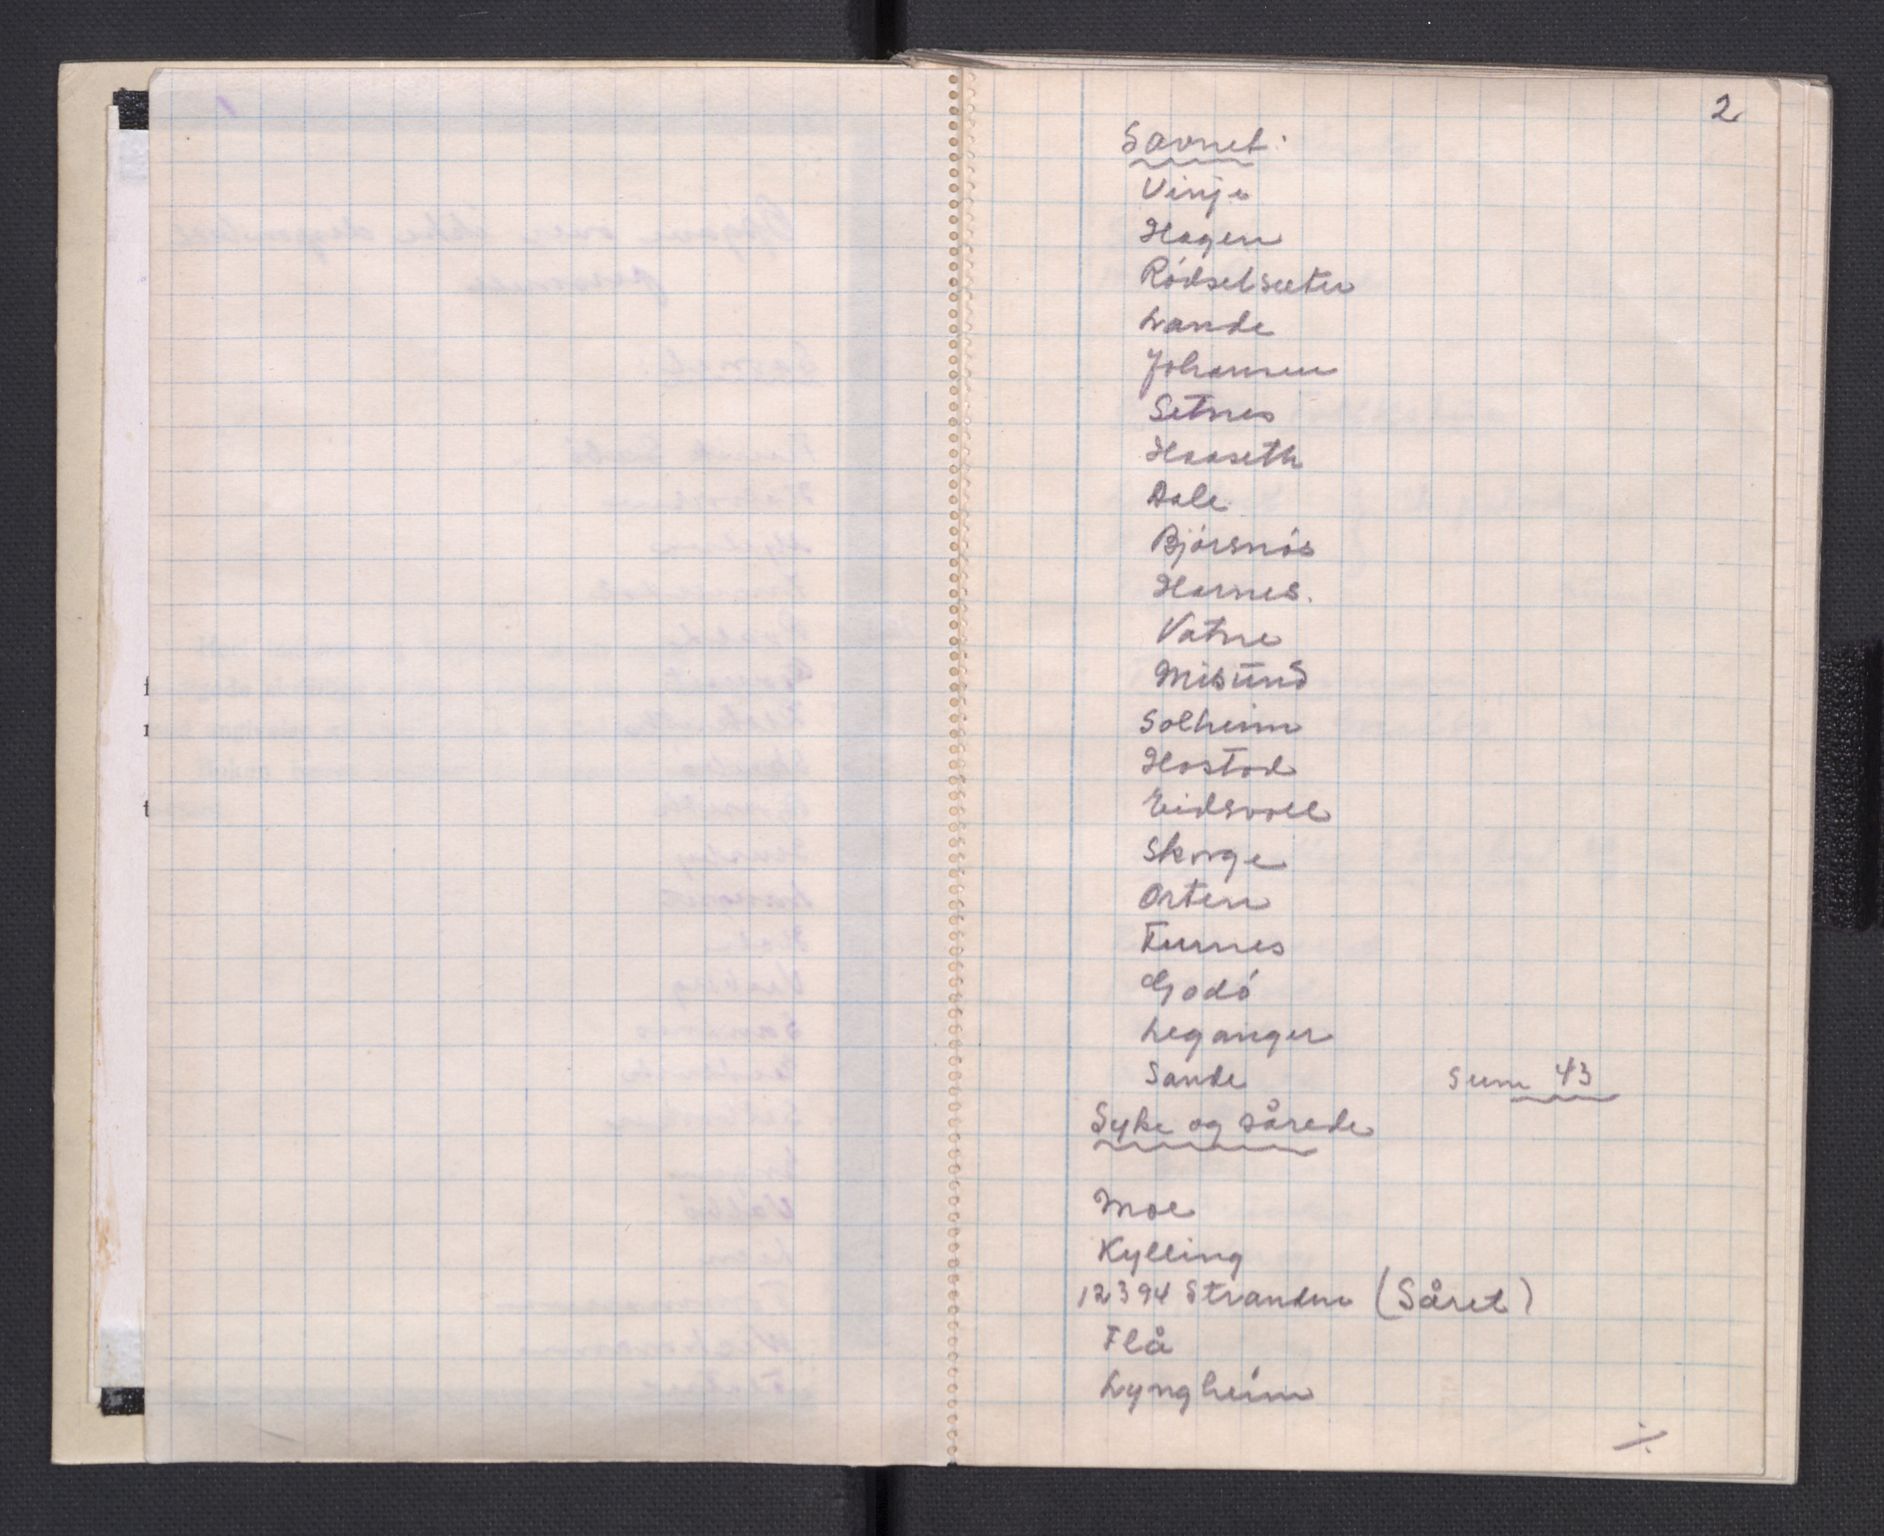 2
Savnet:
Vinje
Hagen
Rødsetsæter
Lande
Johansen
Setnes
Haaseth
Dale
Bjørsnøs
Harnes.
Vatne
Misund
Solheim
Hostad
Eidsvoll
Skorge
Orten
Furnes
Godø
Leganger
Sande Sum 43
Syke og sårede
Moe
Kylling
12394 Strandne (Såret)
Flå
Lyngheim